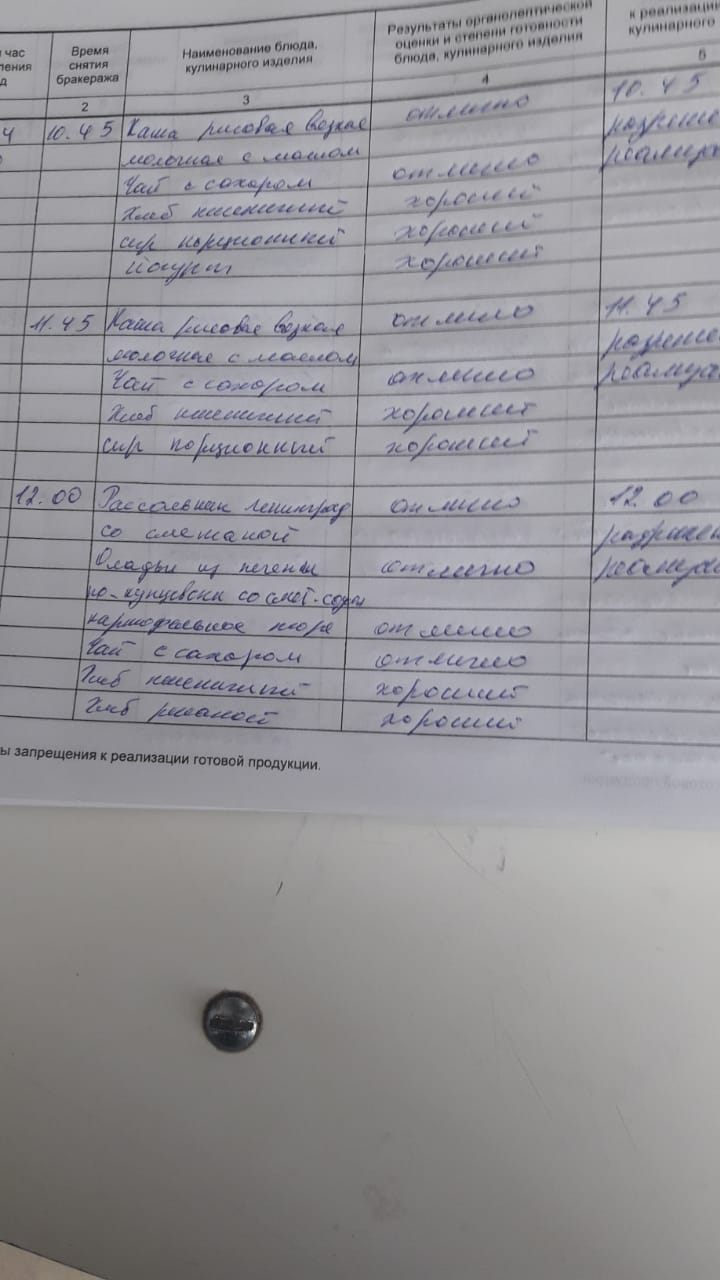 час
Время
снятия
бракеража
Наименование блюда,
кулинарного изделия
Результаты органолептической
оценки и степени готовности
блюда, кулинарного изделия
к реализации
кулинарного
2
3
4
5
10.45 Каша рисовая вязкая отлично 10.45
молочная с маслом
Чай с сахаром отлично
Хлеб пшеничный хороший
сыр порционный хороший
йогурт хороший
11.45 Каша рисовая вязкая отлично 11.45
молочная с маслом
Чай с сахаром отлично
Хлеб пшеничный хороший
сыр порционный хороший
12.00 Рассольник ленинград отлично 12.00
со сметаной
Оладьи из печени отлично
по-купцевски со смет.
картофельное пюре отлично
Чай с сахаром отлично
Хлеб пшеничный хороший
Хлеб ржаной хороший
ы запрещения к реализации готовой продукции.